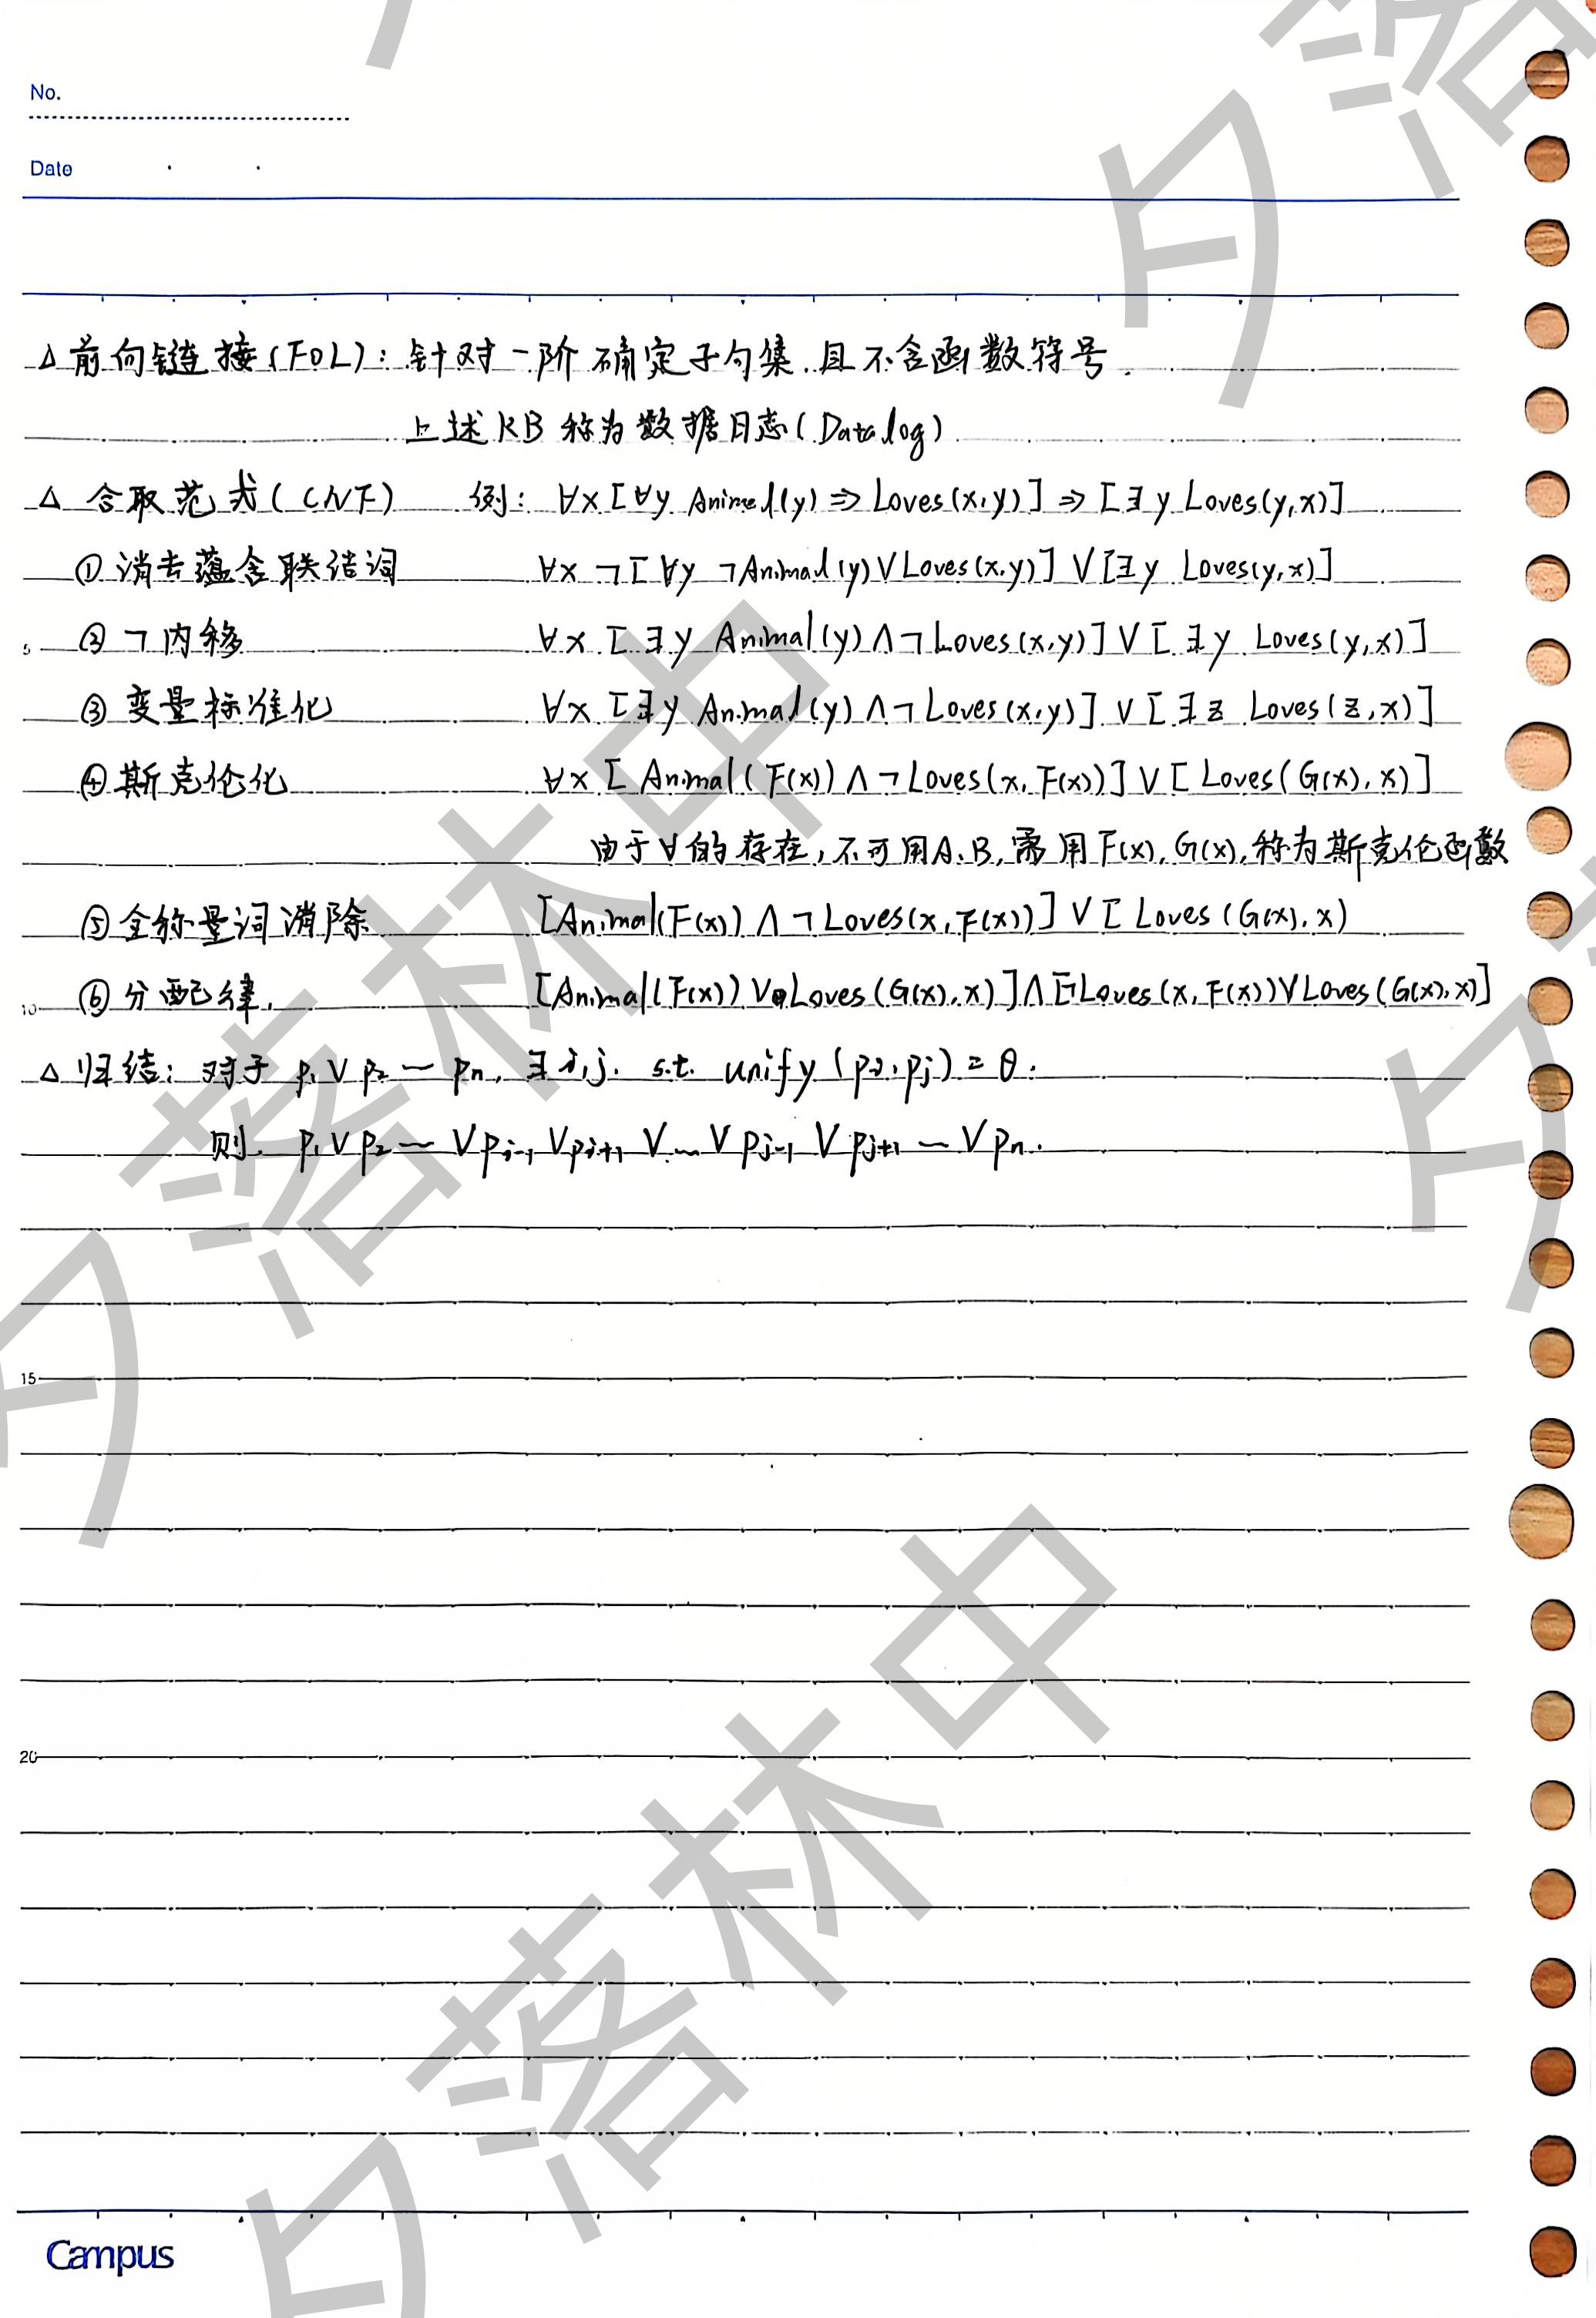 No.
Date
△ 前向链接(FOL): 针对一阶确定子句集.且不含函数符号.
上述KB称为数据日志(Datalog)
△ 合取范式(CNF) 例: ∀x [∀y Animal(y) ⇒ Loves(x,y)] ⇒ [∃y Loves(y,x)]
① 消去蕴含联结词 ∀x ¬[∀y ¬Animal(y) ∨ Loves(x,y)] ∨ [∃y Loves(y,x)]
5 ② ¬内移 ∀x [∃y Animal(y) ∧ ¬Loves(x,y)] ∨ [∃y Loves(y,x)]
③ 变量标准化 ∀x [∃y Animal(y) ∧ ¬Loves(x,y)] ∨ [∃z Loves(z,x)]
④ 斯克伦化 ∀x [Animal(F(x)) ∧ ¬Loves(x,F(x))] ∨ [Loves(G(x),x)]
由于∀的存在,不可用A.B,需用F(x),G(x),称为斯克伦函数
⑤ 全称量词消除 [Animal(F(x)) ∧ ¬Loves(x,F(x))] ∨ [Loves(G(x),x)
10 ⑥ 分配律. [Animal(F(x)) ∨ Loves(G(x),x)] ∧ [¬Loves(x,F(x)) ∨ Loves(G(x),x)]
△ 归结: 对于 p₁ ∨ p₂ … pₙ. ∃ i,j. s.t. unify(pᵢ,pⱼ) = θ.
则. p₁ ∨ p₂ … ∨ pᵢ₋₁ ∨ pᵢ₊₁ ∨ … ∨ pⱼ₋₁ ∨ pⱼ₊₁ … ∨ pₙ.
15
20
Campus
夕落林中
夕落林中
夕落
夕